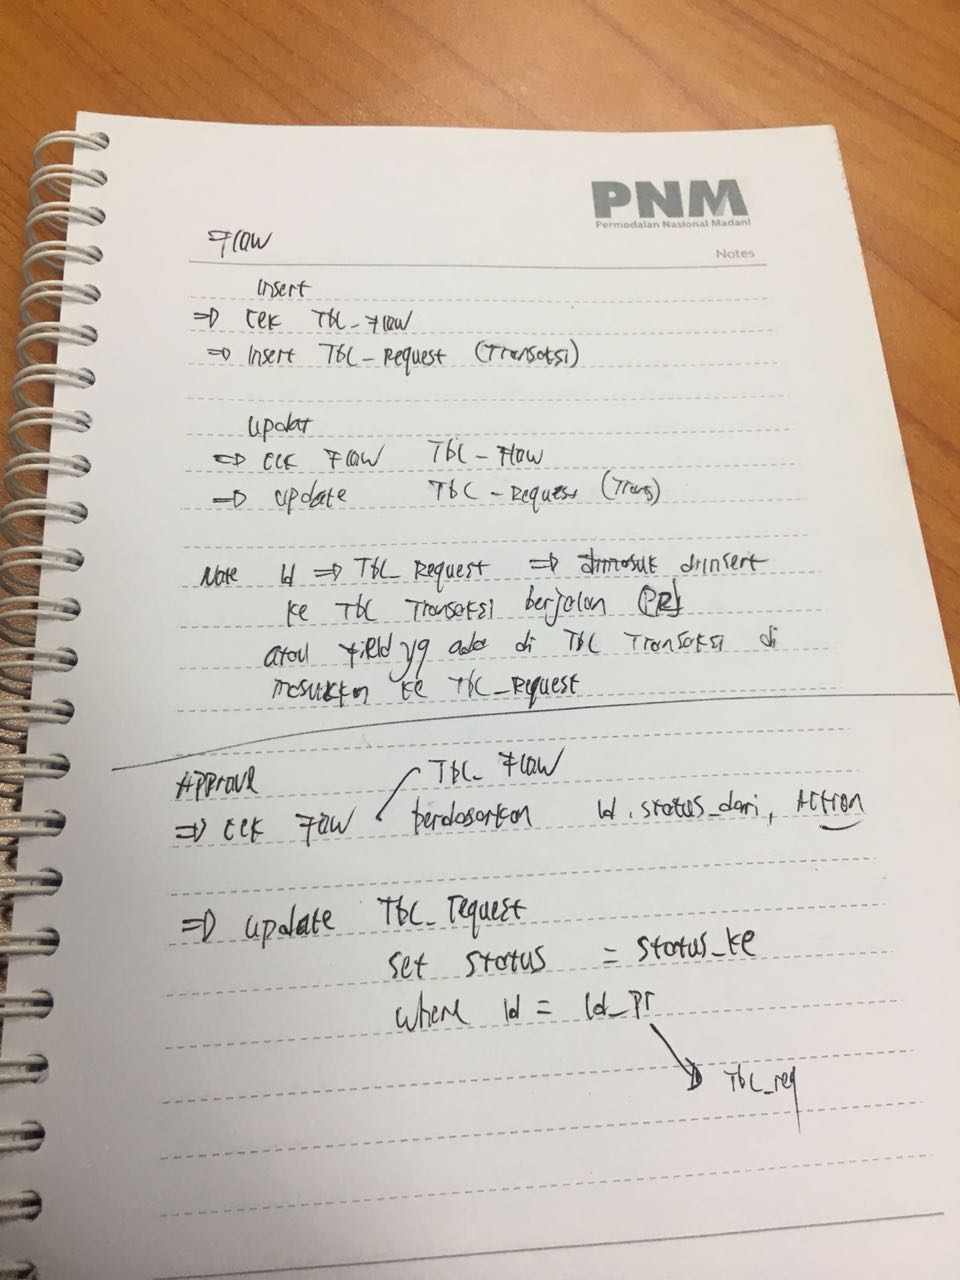 PNM
Permodalan Nasional Madani
Notes
Flow
Insert
⇒ Cek Tbl_Flow
⇒ Insert Tbl_Request (Transaksi)
Updat
⇒ Cek Flow Tbl_Flow
⇒ Update Tbl_Request (Trans)
Note Id ⇒ Tbl_Request ⇒ diinsert
ke Tbl Transaksi berjalan (PR)
atau Field yg ada di Tbl Transaksi di
masukkan ke Tbl_Request
Approve
Tbl_Flow
⇒ Cek Flow berdasarkan Id, status_dari, Action
⇒ Update Tbl_request
set status = status_ke
where Id = Id_Pr
Tbl_req